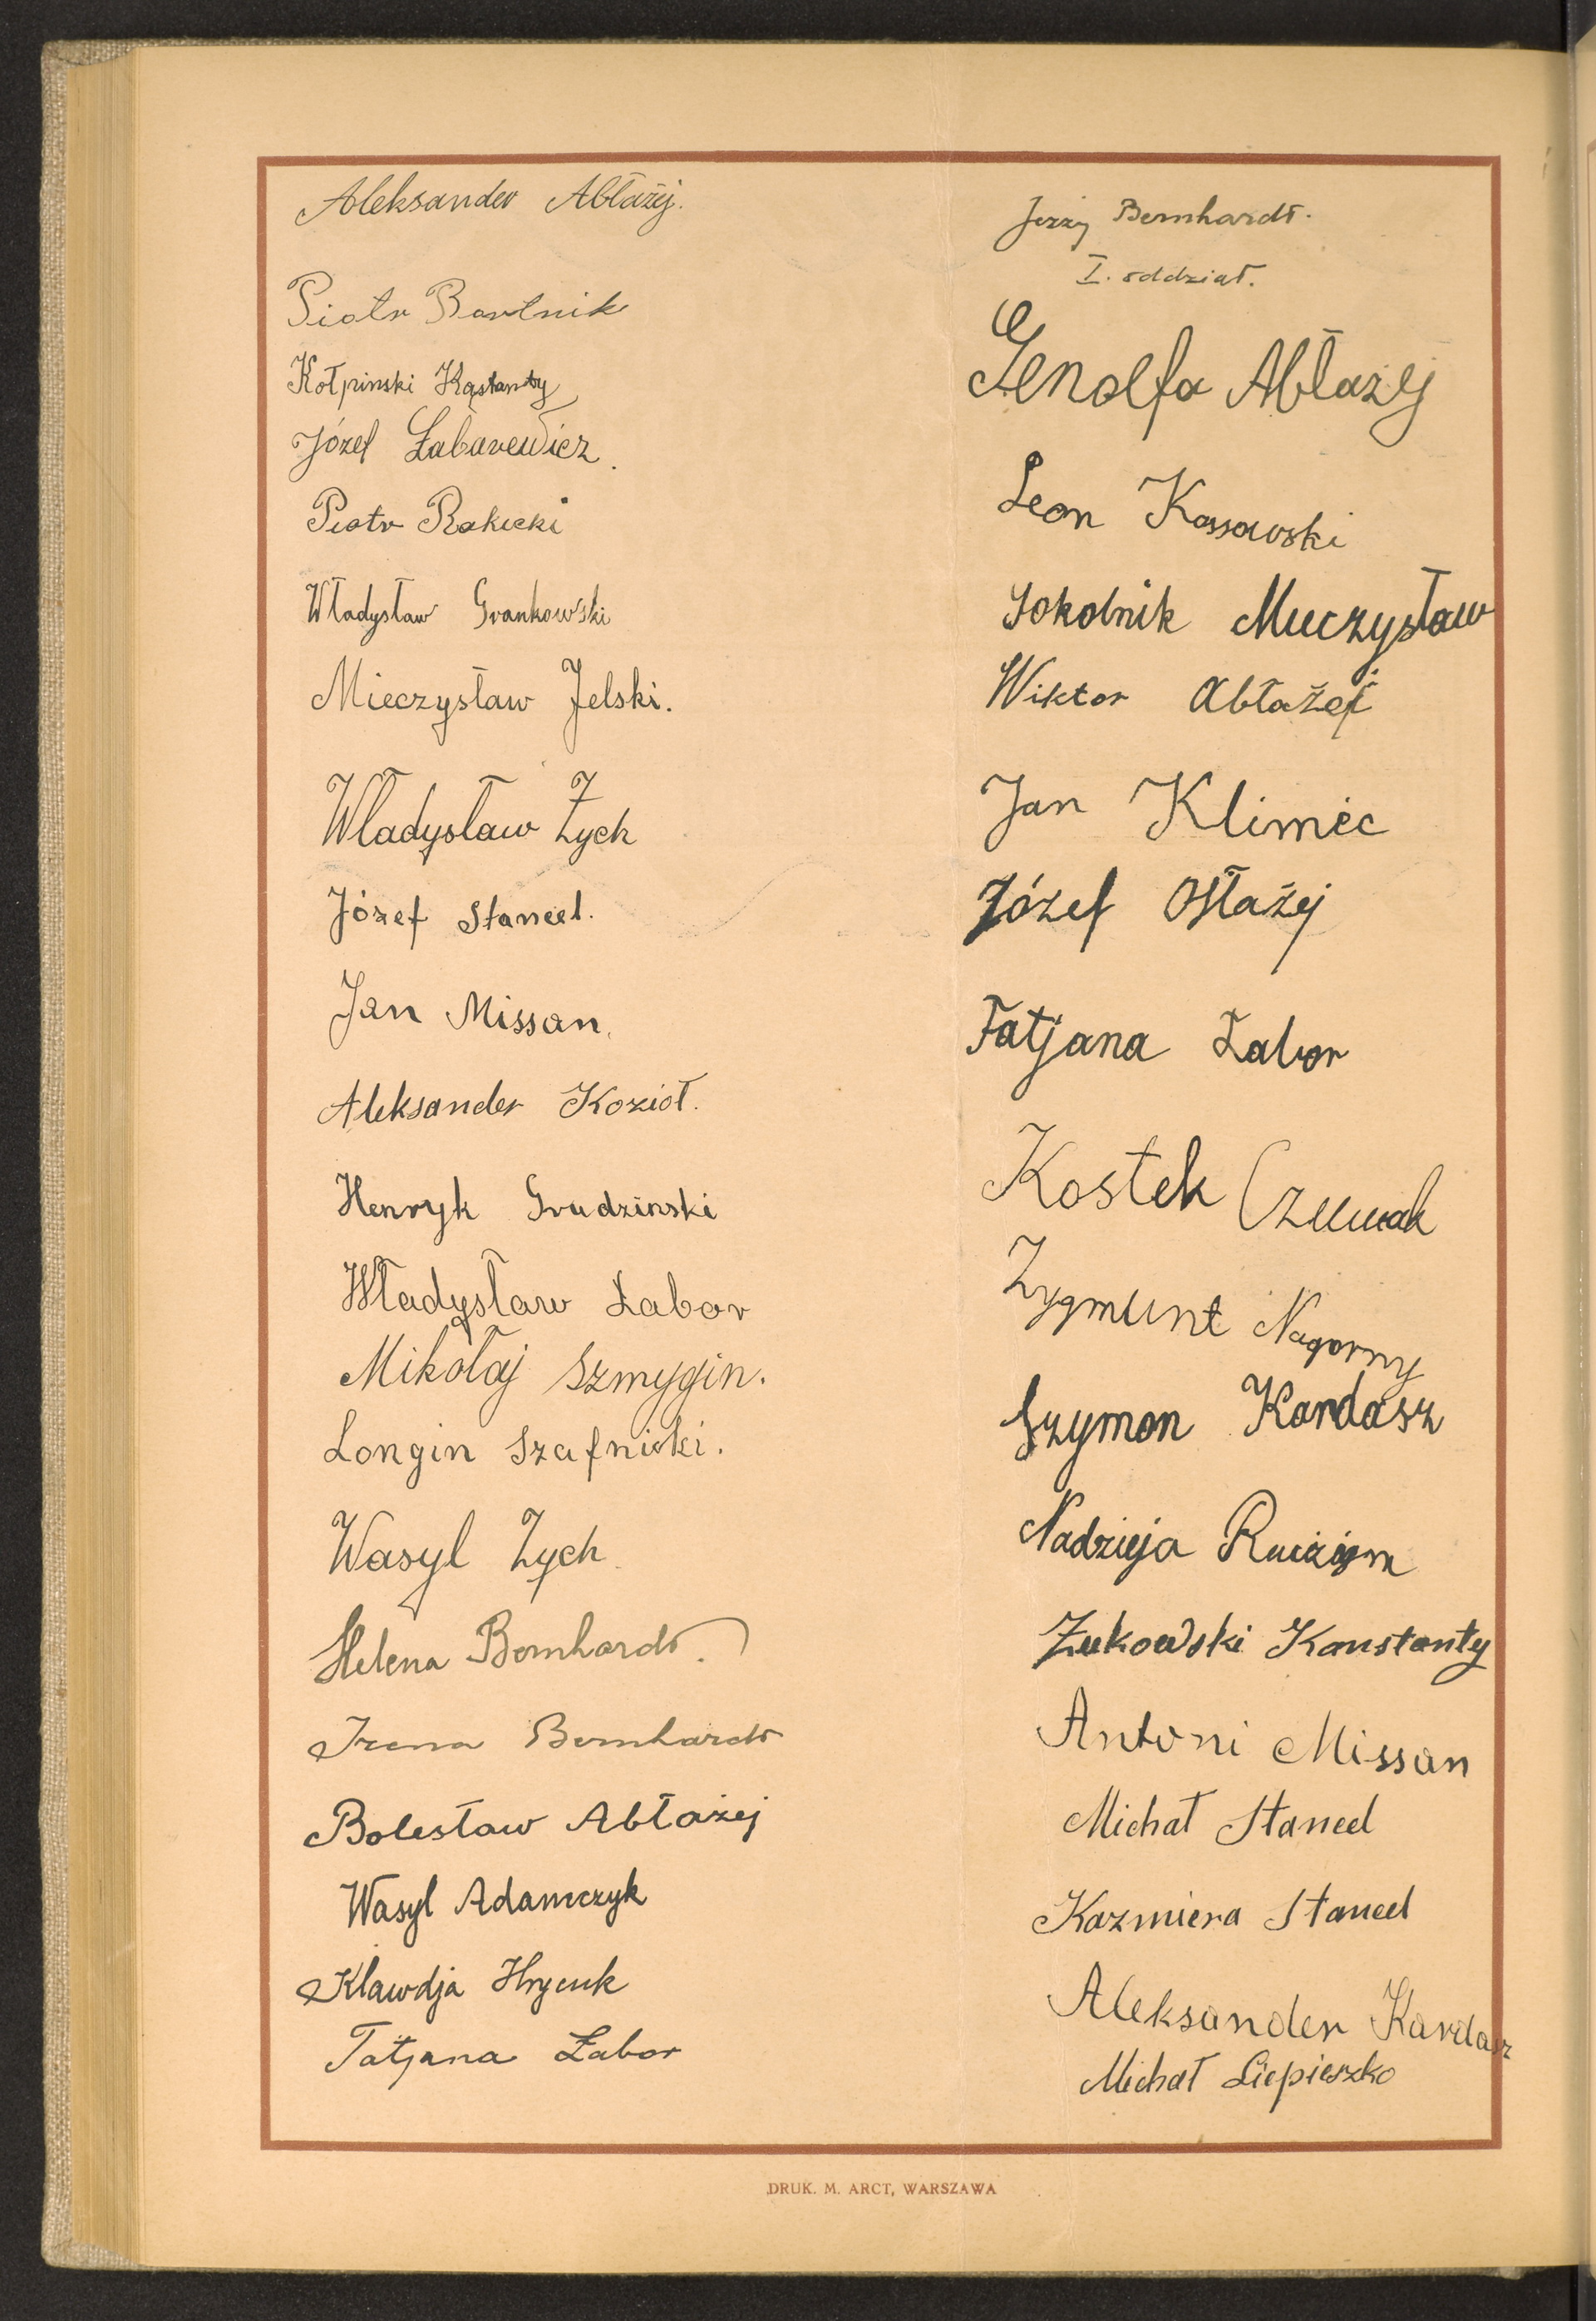 Aleksander Abłażej.
Piotr Bartnik
Kołpinski Kąstanty
Józef Łabarewicz.
Piotr Rakicki
Władysław Grankowski
Mieczysław Jelski.
Władysław Zych
Józef Stancel.
Jan Missan.
Aleksander Kozioł.
Henryk Grudzinski
Władysław Łabor
Mikołaj Szmygin.
Longin Szafnicki.
Wasyl Zych
Helena Bernhardt.
Irena Bernhardt
Bolesław Abłażej
Wasyl Adamczyk
Klawdja Hrycuk
Tatjana Łabor
Jerzy Bernhardt.
I. oddział.
Genolfa Abłazej
Leon Kassowski
Sokolnik Mieczysław
Wiktor Abłażej
Jan Klimiec
Józef Obłażej
Tatjana Łabor
Kostek
Zygmunt Nagorny
Szymon Kardasz
Nadzieja
Żukowski Konstanty
Antoni Missan
Michał Stancel
Kazmiera Stancel
Aleksander Kardasz
Michał Liepieszko
DRUK. M. ARCT, WARSZAWA